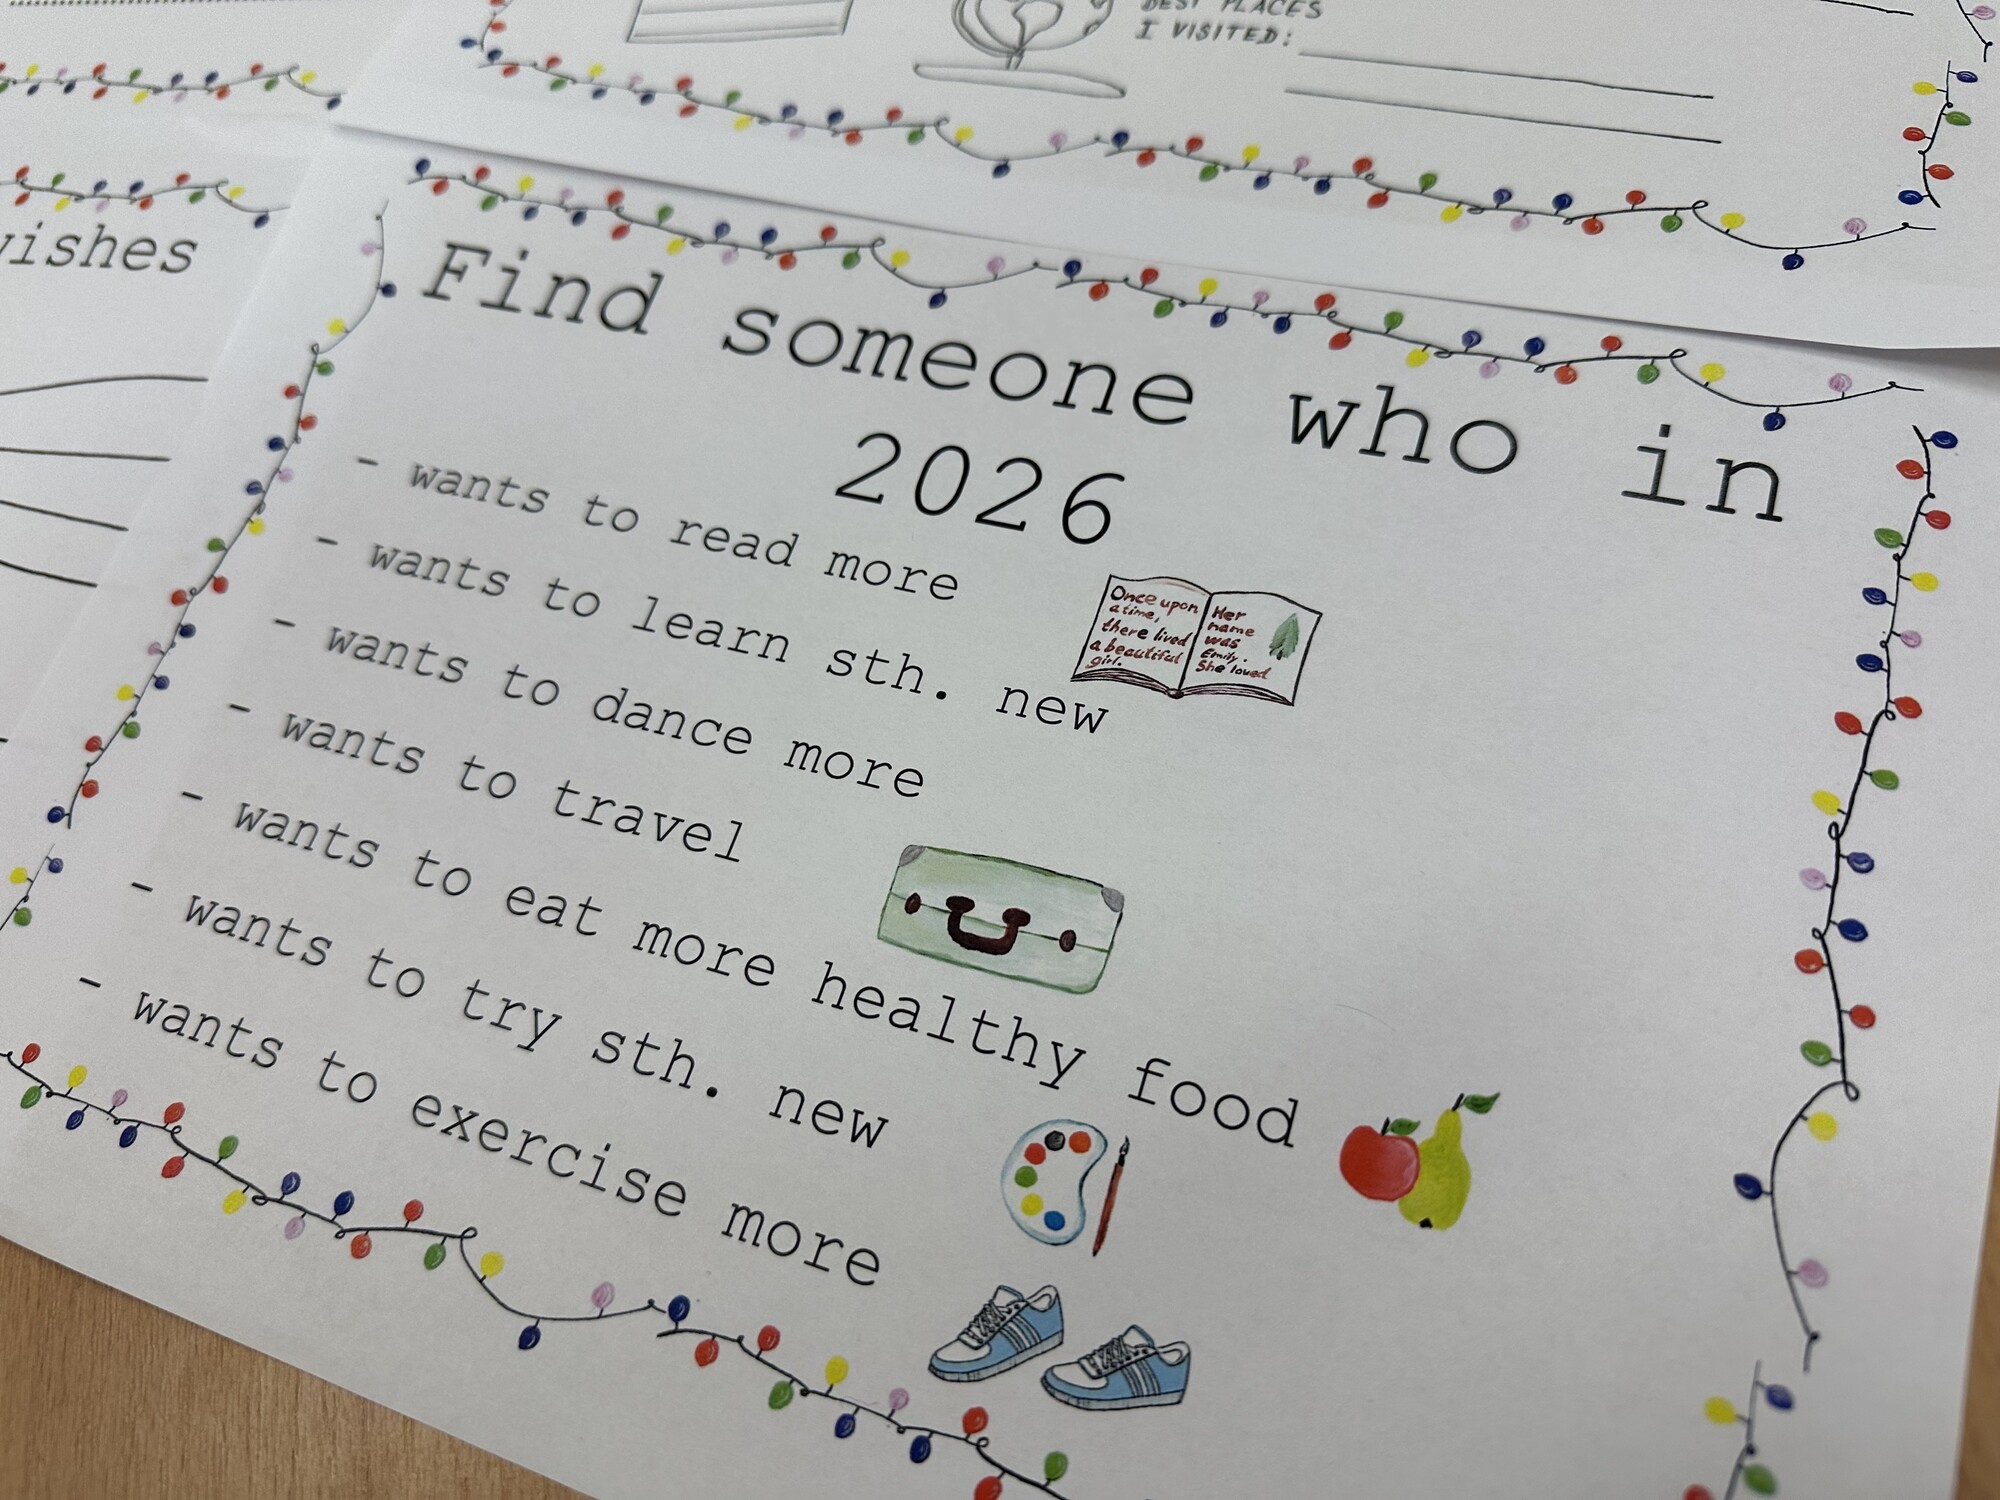 BEST PLACES
I VISITED:
wishes
Find someone who in
2026
- wants to read more
- wants to learn sth. new
- wants to dance more
- wants to travel
- wants to eat more healthy food
- wants to try sth. new
- wants to exercise more
Once upon
a time,
there lived
a beautiful
girl.
Her
name
was
Emily.
She loved